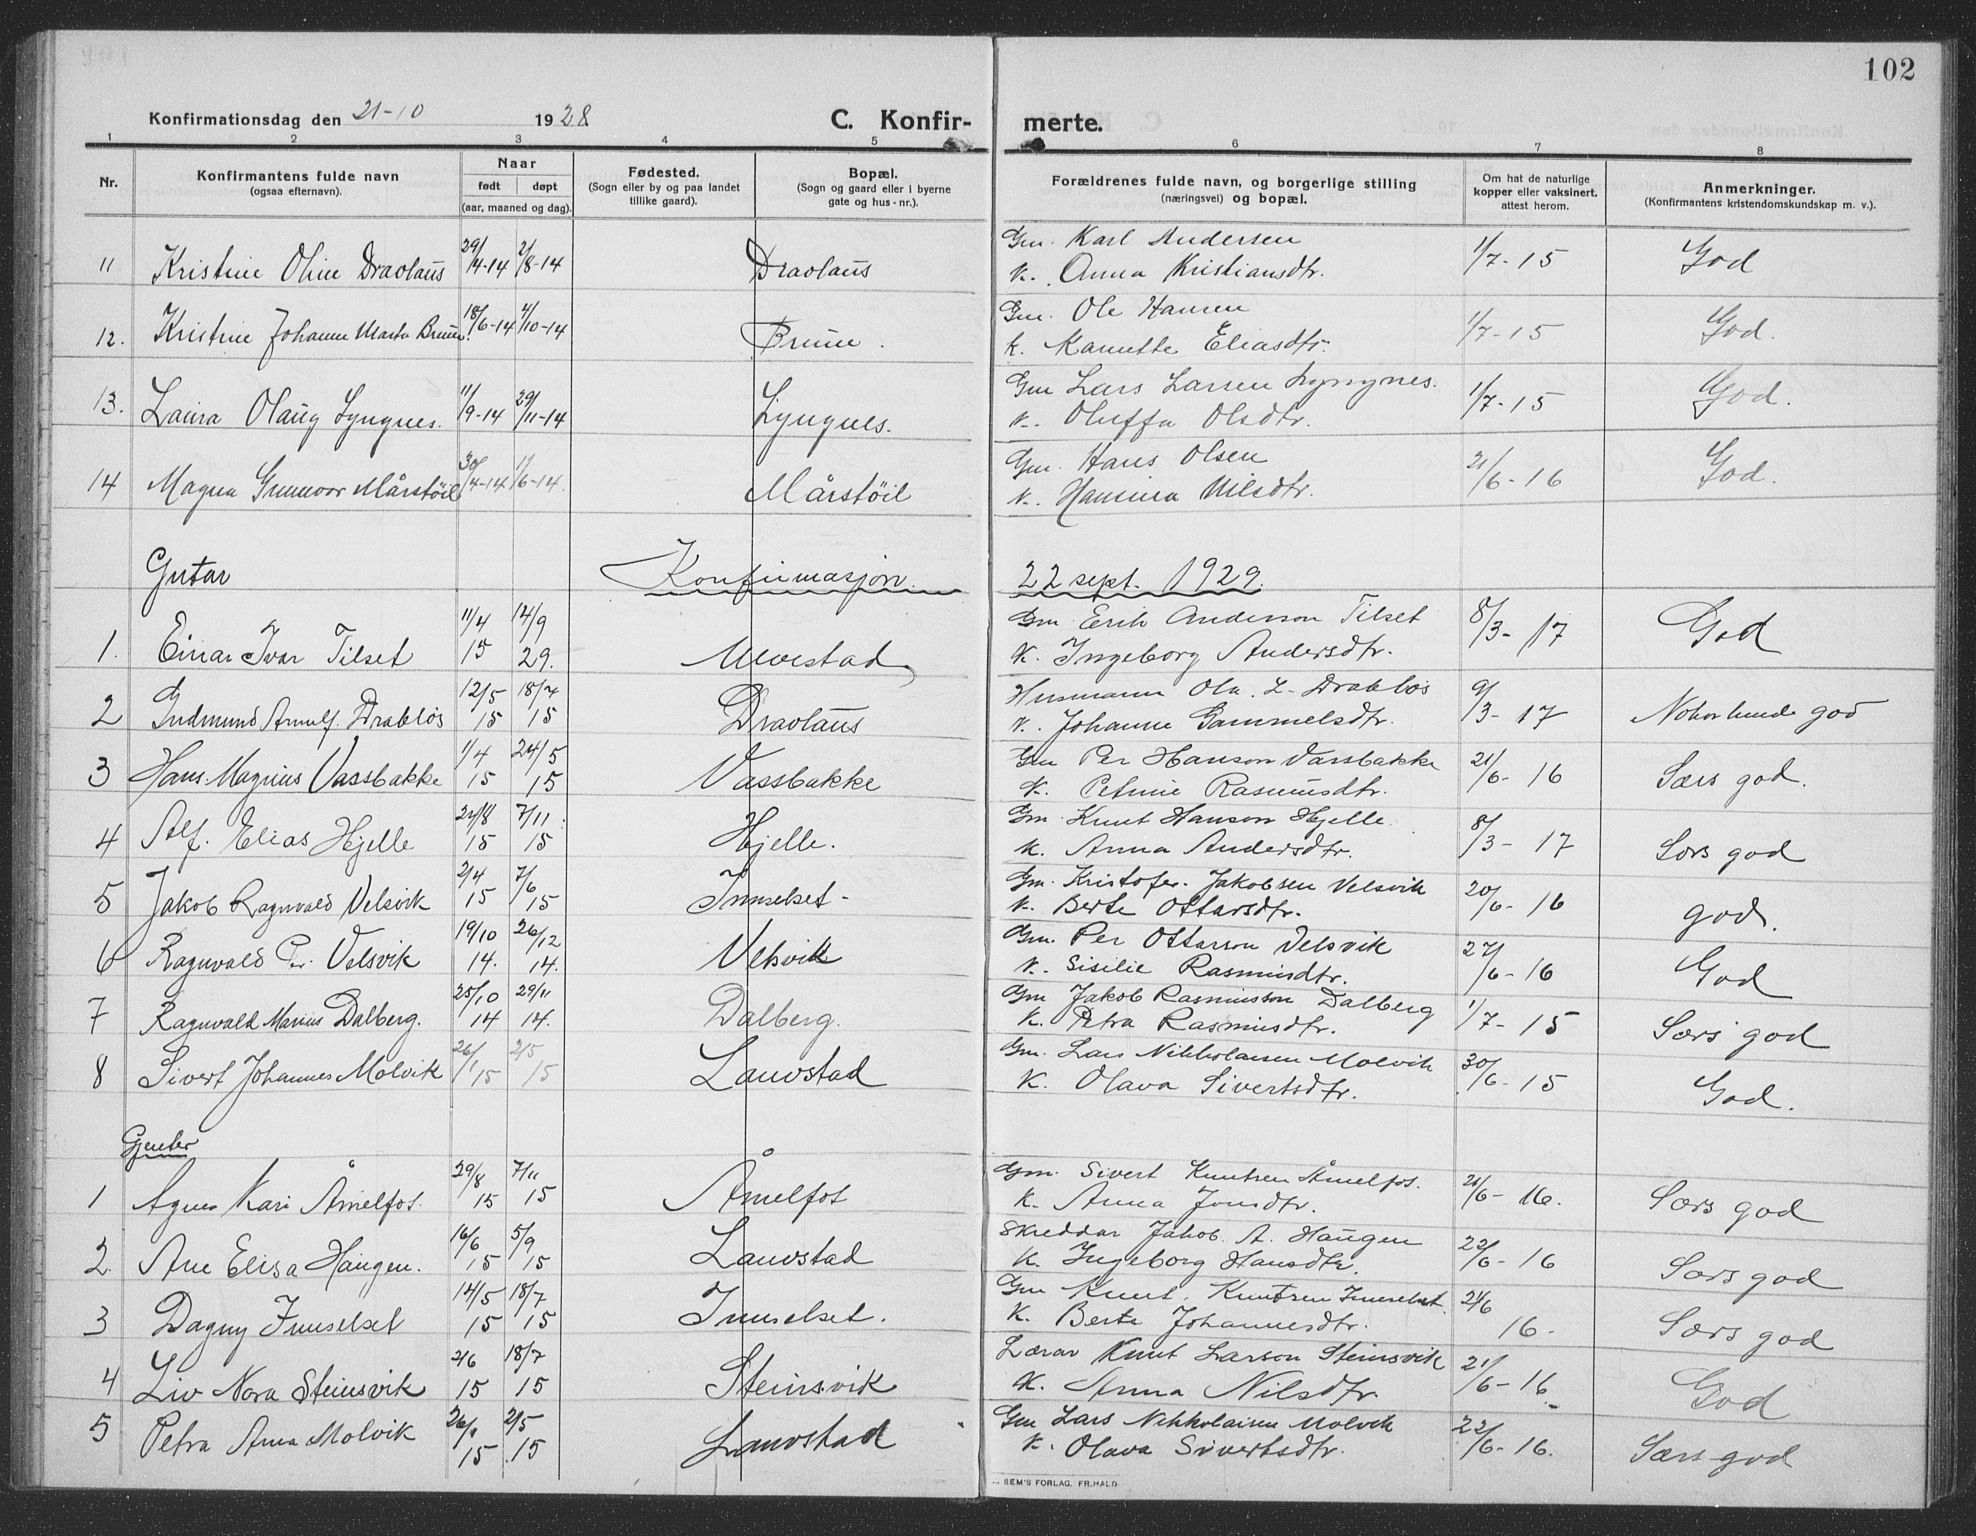 102
Konfirmationsdag den 21-10 1928
C. Konfir- merte.
1 2 3 4 5 6 7 8
Nr.
Konfirmantens fulde navn
(ogsaa efternavn).
Naar
født døpt
(aar, maaned og dag).
Fødested.
(Sogn eller by og paa landet
tillike gaard).
Bopæl.
(Sogn og gaard eller i byerne
gate og hus-nr.).
Forældrenes fulde navn, og borgerlige stilling
(næringsvei) og bopæl.
Om hat de naturlige
kopper eller vaksinert.
attest herom.
Anmerkninger.
(Konfirmantens kristendomskundskap m. v.).
11 Kristine Oline Dravlaus 29/4-14 2/8-14 Dravlaus Gm. Karl Andersen 1/7-15 God
K. Anna Kristiansdtr.
12. Kristine Johanne Marta Brune. 18/6-14 4/10-14 Brune. Gm. Ole Hansen 1/7-15 God.
K. Kanutte Eliasdtr.
13. Laura Olaug Lyngnes. 11/9-14 29/11-14 Lyngnes. Gm Lars Larsen Lyngnes. 1/7-15 God.
K. Oluffa Olsdtr.
14 Magna Gunnvor Mårstöil 30/4-14 1/6-14 Mårstöil Gm. Hans Olsen 21/6-16 God.
K. Hansina Nilsdtr.
Gutar Konfirmasjon. 22 sept. 1929.
1. Einar Ivar Tilset 11/4 15 14/9 29. Ulvestad Gm. Erik Anderson Tilset 8/3-17 God
K. Ingeborg Andersdtr.
2 Gudmund Arnulf. Drabløs 12/5 15 18/7 15 Dravlaus Husmann Ola. L. Drabløs 9/3-17 Nokorlunde god
K. Johanne Gammelsdtr.
3 Hans Magnus Vassbakke 1/4 15 24/5 15 Vassbakke Gm Per Hanson Vassbakke 21/6-16 Særs god.
K. Petrine Rasmusdtr.
4 Alf. Elias Hjelle 24/8 15 7/11 15 Hjelle. Gm. Knut Hanson Hjelle. 8/3-17 Særs god
K. Anna Andersdtr.
5 Jakob Ragnvald Velsvik 2/4 15 7/6 15 Innselset- Gm. Kristofer. Jakobsen Velsvik 20/6-16 god.
K. Berte Ottarsdtr.
6 Ragnvald Per. Velsvik 19/10 14. 26/12 14. Velsvik Gm. Per Ottarson Velsvik 27/6-16 God
K. Sisilie Rasmusdtr.
7 Ragnvald Marius Dalberg. 25/10 14 29/11 14. Dalberg. Gm Jakob Rasmusson Dalberg 1/7-15 Særs god
K. Petra Rasmusdtr.
8 Sivert Johannes Molvik 26/1 15 2/5 15 Lauvstad Gm. Lars Nikkolaisen Molvik 30/6-15 God.
K. Olava Sivertsdtr.
Gjenter
1 Agnes Kari Åmelfot. 29/8 15 7/11 15 Åmelfot Gm. Sivert Knutsen Åmelfos. 21/6-16. Særs god
K. Anna Jonsdtr.
2. Ane Elisa Haugen. 16/6 15 5/9 15 Lauvstad Skreddar Jakob. A. Haugen 22/6-16 Særs god
K. Ingeborg Hansdtr.
3 Dagny Innselset 14/5 15 18/7 15 Innselset. Gm Knut. Knutsen Innselset. 21/6 16. Særs god
K. Berte Johannesdtr.
4 Liv Nora Steinsvik 2/6 15 18/7 15 Steinsvik Lærar Knut Larson Steinsvik 21/6-16 God
K. Anna Nilsdtr.
5 Petra Anna Molvik 26/1 15 2/5 15 Lauvstad Gm Lars Nikkolaisen Molvik 22/6-16. Særs god
K. Olava Sivertsdtr.
SEM'S FORLAG, FR.HALD